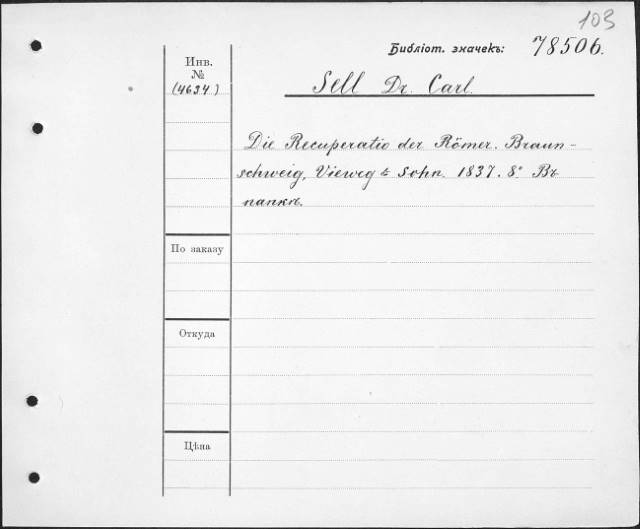 103
Библіот. значекъ: 78506.
Инв.
№
(4634)
Sell Dr. Carl.
Die Recuperatio der Römer. Braun-
schweig, Vieweg & Sohn. 1837. 8° Въ
папкѣ.
По заказу
Откуда
Цѣна